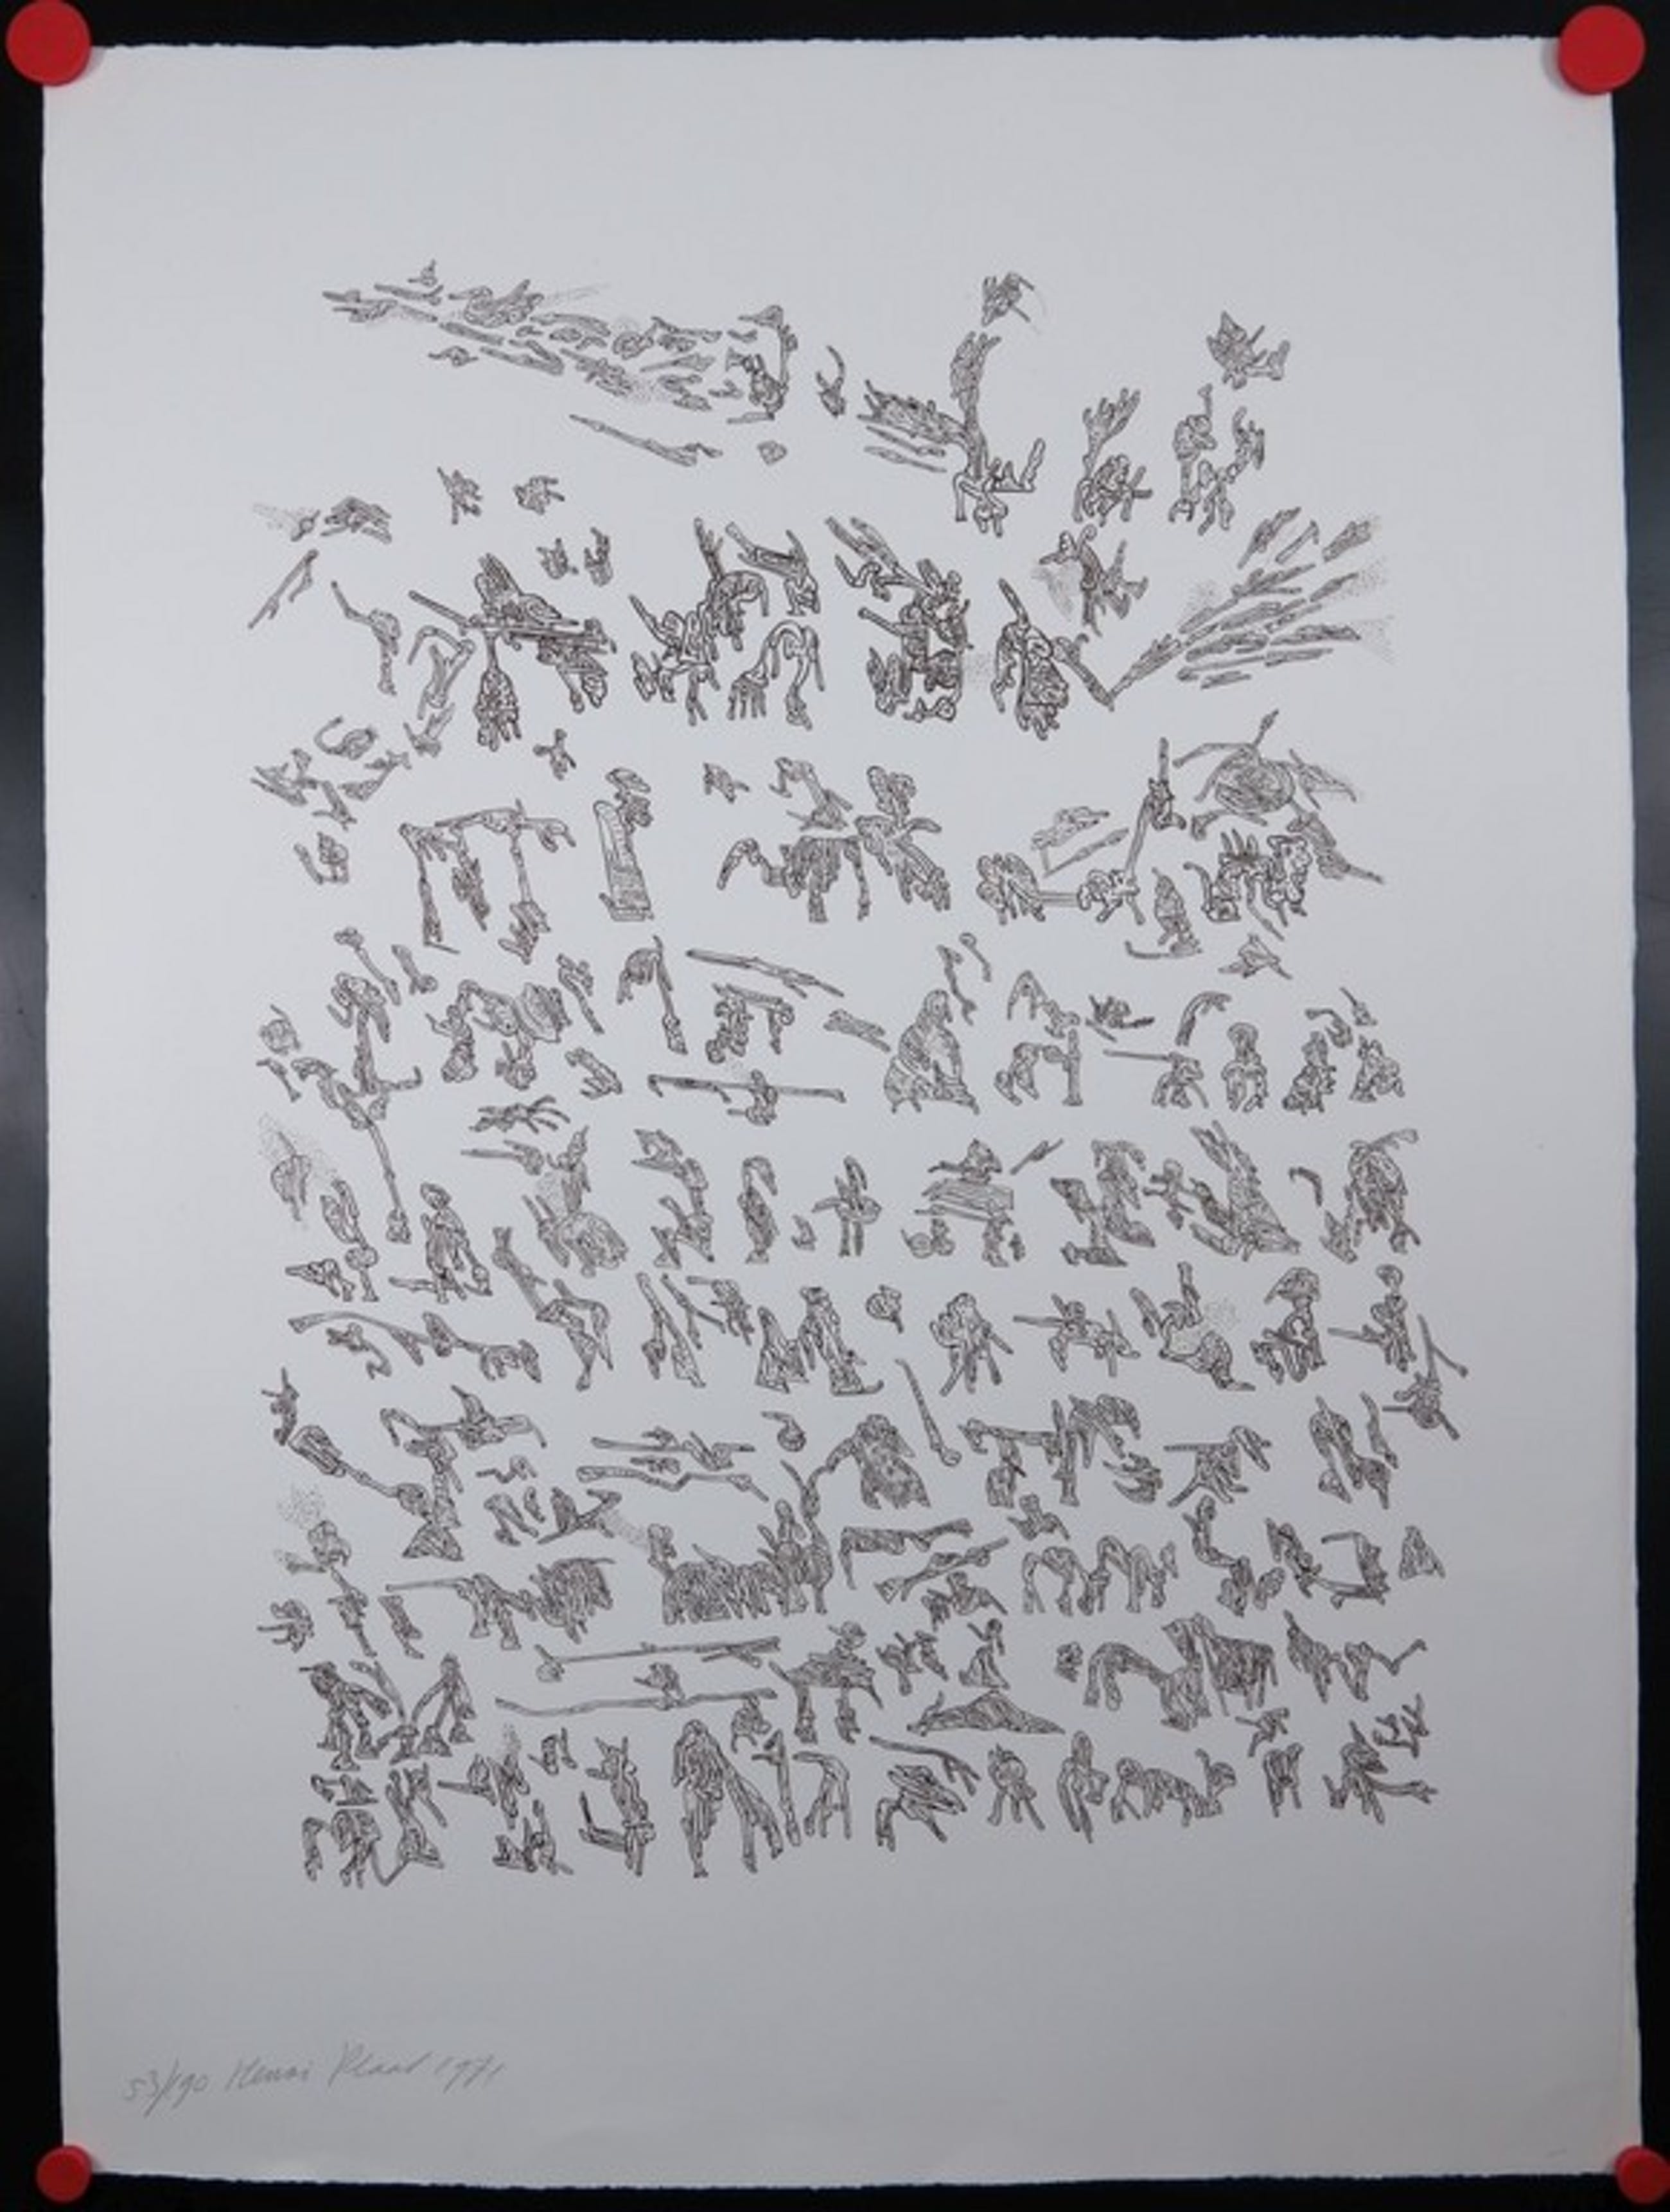 53/190 Henri Plaat 1971